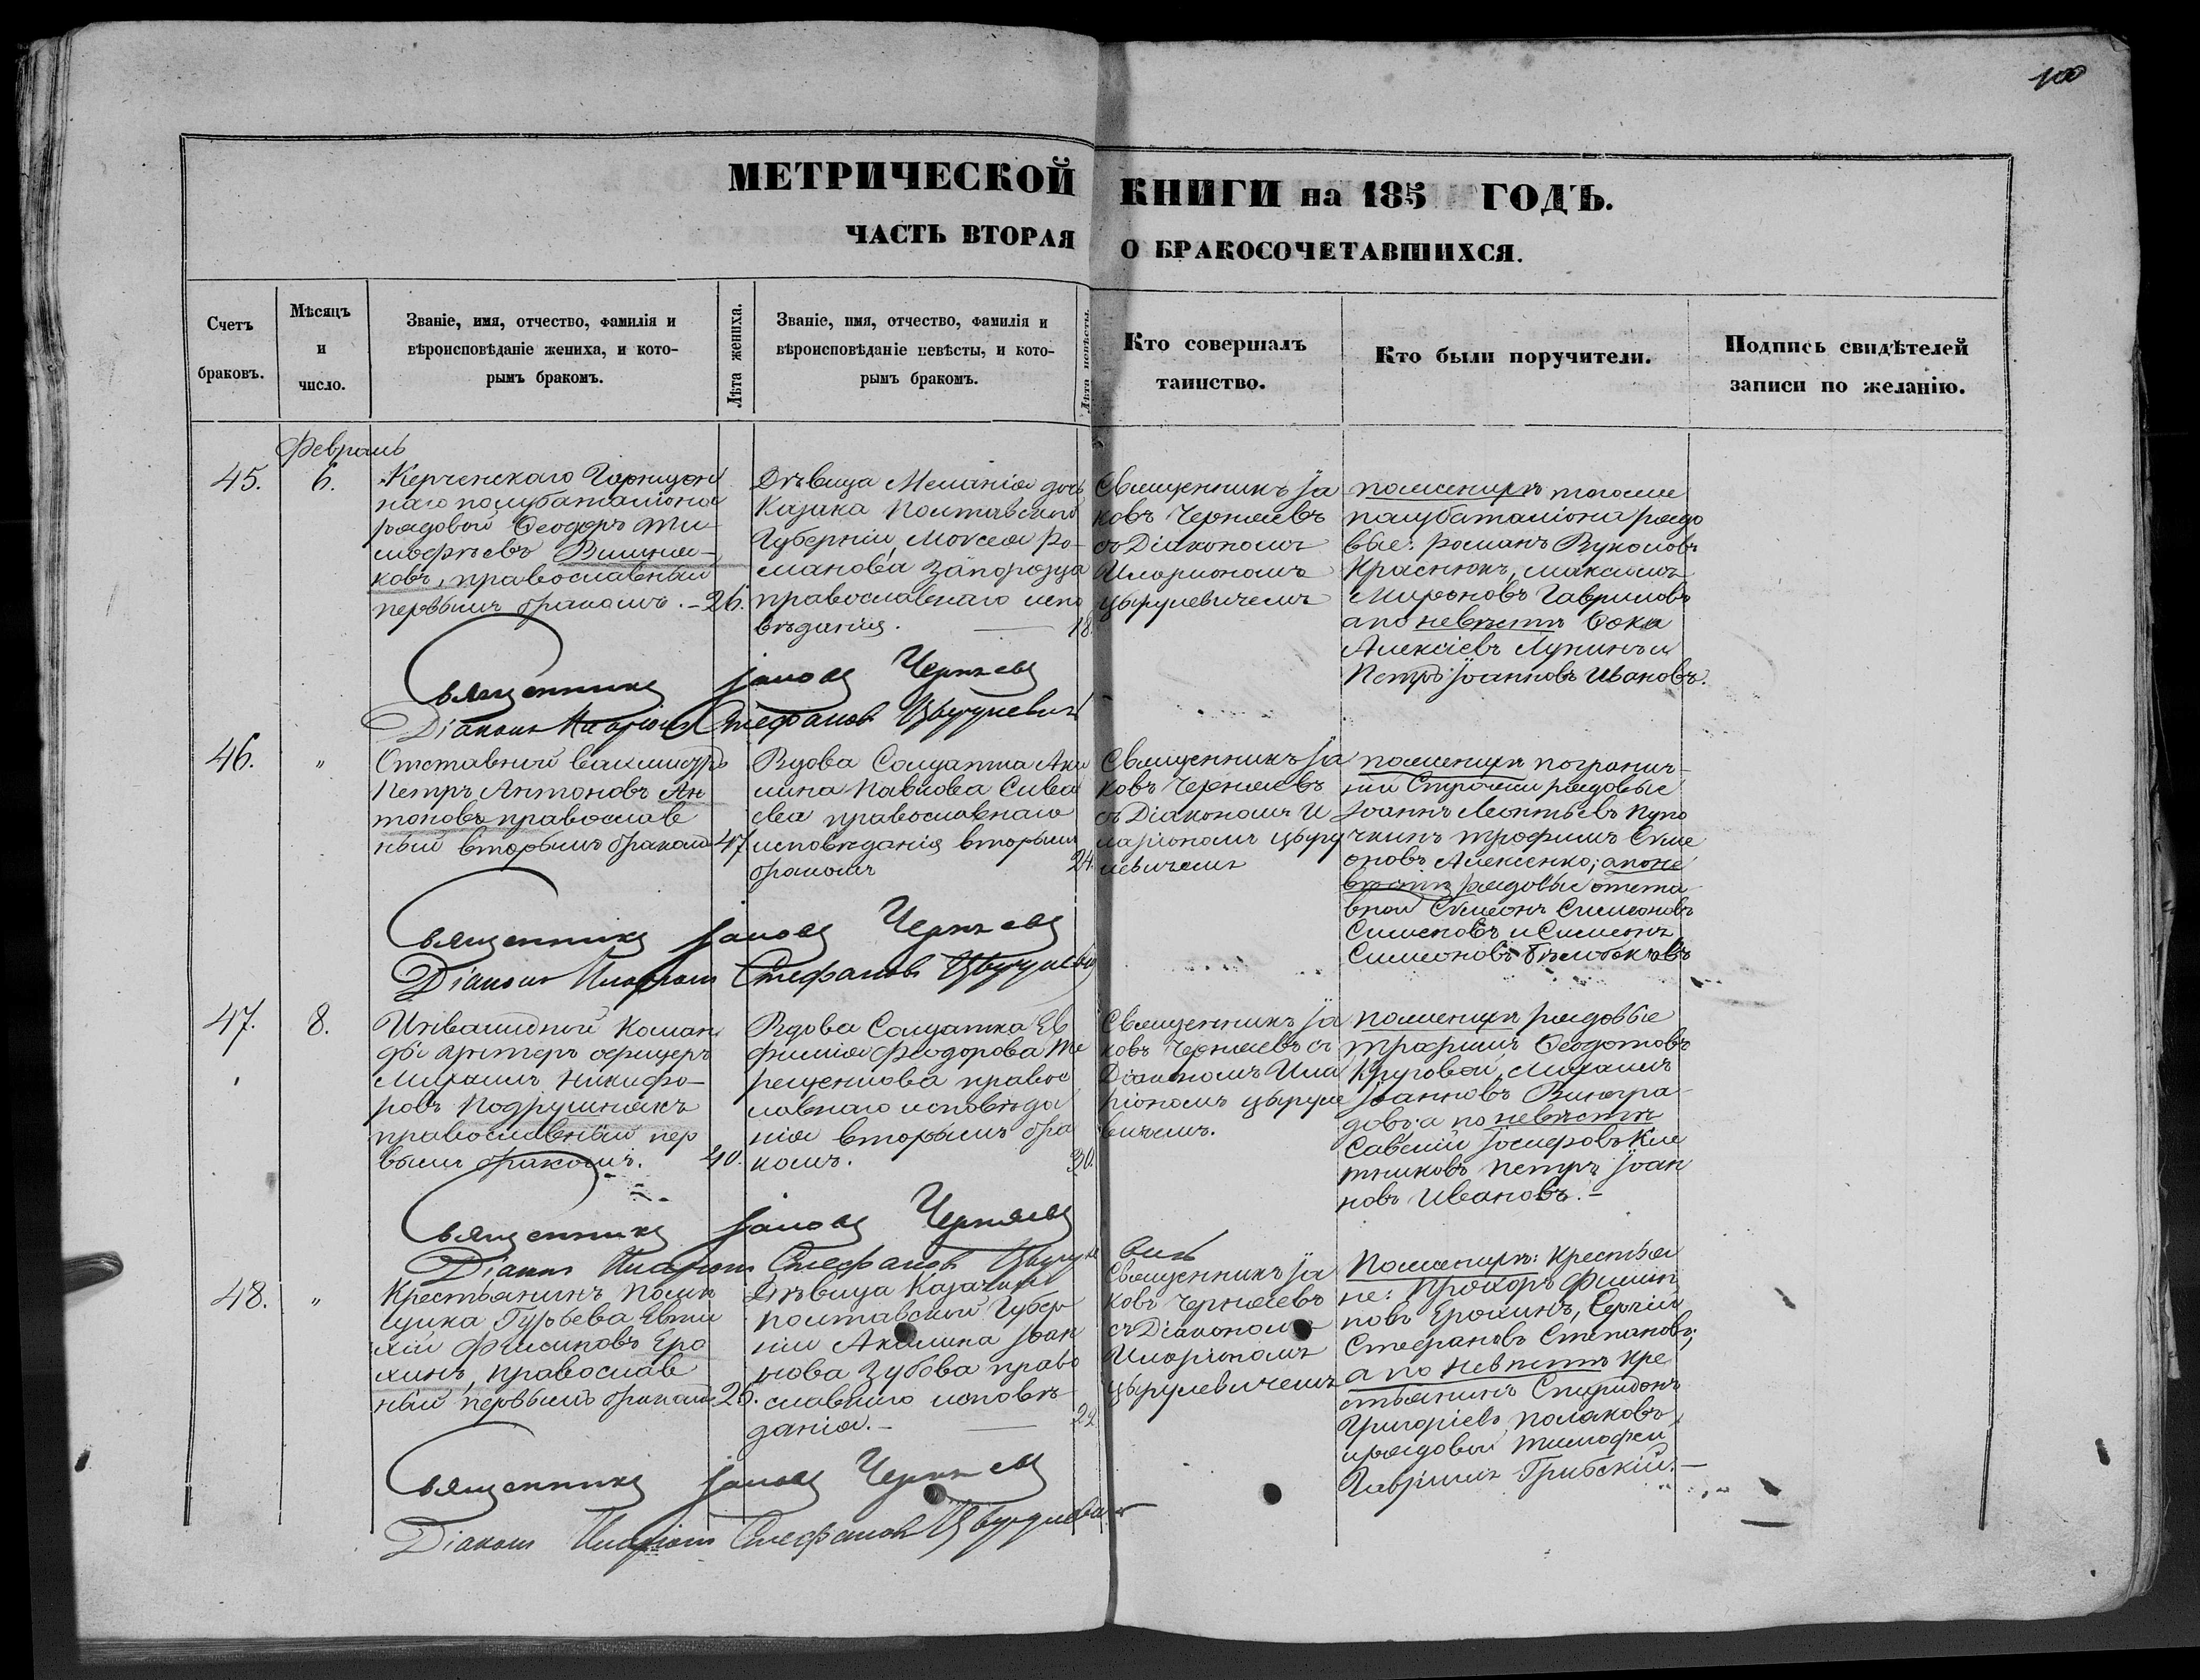 100
МЕТРИЧЕСКОЙ КНИГИ на 185 ГОДЪ.
ЧАСТЬ ВТОРАЯ О БРАКОСОЧЕТАВШИХСЯ.
Счетъ
браковъ.
Мѣсяцъ
и
число.
Званіе, имя, отчество, фамилія и
вѣроисповѣданіе жениха, и кото-
рымъ бракомъ.
Лѣта жениха.
Званіе, имя, отчество, фамилія и
вѣроисповѣданіе невѣсты, и кото-
рымъ бракомъ.
Лѣта невѣсты.
Кто совершалъ
таинство.
Кто были поручители.
Подпись свидѣтелей
записи по желанію.
Февраль
45.
6.
Керченскаго Гарнизон
наго полубаталіона
рядовой Ѳеодоръ Ти-
моѳѣевъ Вишня-
ковъ, православный
первымъ бракомъ. -
26.
Дѣвица Меланія дочь
Казака Полтавской
Губерніи, Моѵсея Ро-
манова Запорозца
православнаго испо
вѣданія.
18.
Священникъ Іа
ковъ Черняевъ
съ Діакономъ
Иларіономъ
Цырулевичемъ
по женихѣ тогоже
полубаталіона рядо
вые: Романъ
Краснюкъ, Максимъ
Мироновъ Гавриловъ
а по невѣстѣ Ѳока
Алексіевъ Лукинъ и
Петръ Іоанновъ Ивановъ.
Священникъ Іаковъ Черняевъ
Діаконъ Иларіонъ Стефановъ Цырулевичъ
46.
"
Отставный вахмистръ
Петръ Антоновъ Ан
тоновъ православ
ный вторымъ бракомъ
47.
Вдова Солдатка Аку
лина Павлова
православнаго
исповѣданія вторымъ
бракомъ
24.
Священникъ Іа
ковъ Черняевъ
съ Діакономъ И
ларіономъ Цыру
левичемъ
по женихѣ погранич-
ной Стражи рядовые
Іоаннъ Леонтьевъ Пупо
чкинъ Трофимъ Симе
оновъ Алексенко; а по не
вѣстѣ рядовые отста
вной Симеонъ Симеоновъ
Симеоновъ и Симеонъ
Симеоновъ
Священникъ Іаковъ Черняевъ
Діаконъ Иларіонъ Стефановъ
47.
8.
Инвалидной Коман
ды унтеръ офицеръ
Михаилъ Никифо-
ровъ Подрушнякъ
православный пер
вымъ бракомъ.
40.
Вдова Солдатка Ев
фимія Ѳеодорова Те
рещенкова правос
лавнаго исповѣда
нія вторымъ бра
комъ.
30.
Священникъ Іа
ковъ Черняевъ съ
Діакономъ Ила
ріономъ Цыруле
вичемъ.
по женихѣ рядовые
Трофимъ Ѳеодотовъ
Круговой, Михаилъ
Іоанновъ Виногра-
довъ: а по невѣстѣ
Савелій Іосифовъ
Петръ Іоан
новъ Ивановъ. -
Священникъ Іаковъ Черняевъ
Діаконъ Иларіонъ Стефановъ Цыруле
вичъ
48.
"
Крестьянинъ Помѣ
щика Гурьева Евти
хій Филиповъ Еро
хинъ, православ
ный первымъ бракомъ
26.
Дѣвица Казачка
Полтавской Губер
ніи Акилина Іоан
нова Зубова право
славнаго исповѣ
данія. -
22.
Священникъ Іа
ковъ Черняевъ
съ Діакономъ
Иларіономъ
Цырулевичемъ
По женихѣ: крестья
не: Прохоръ Филип
повъ Ерохинъ, Сергій
Стефановъ Степановъ;
а по невѣстѣ кре
стьянинъ Спиридонъ
Григоріевъ Полаковъ,
и рядовой Тимофей
Гавріилъ Грибскій. -
Священникъ Іаковъ Черняевъ
Діаконъ Иларіонъ Стефановъ Цырулевичъ